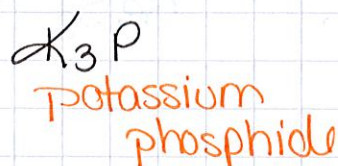 K₃P
potassium
phosphide